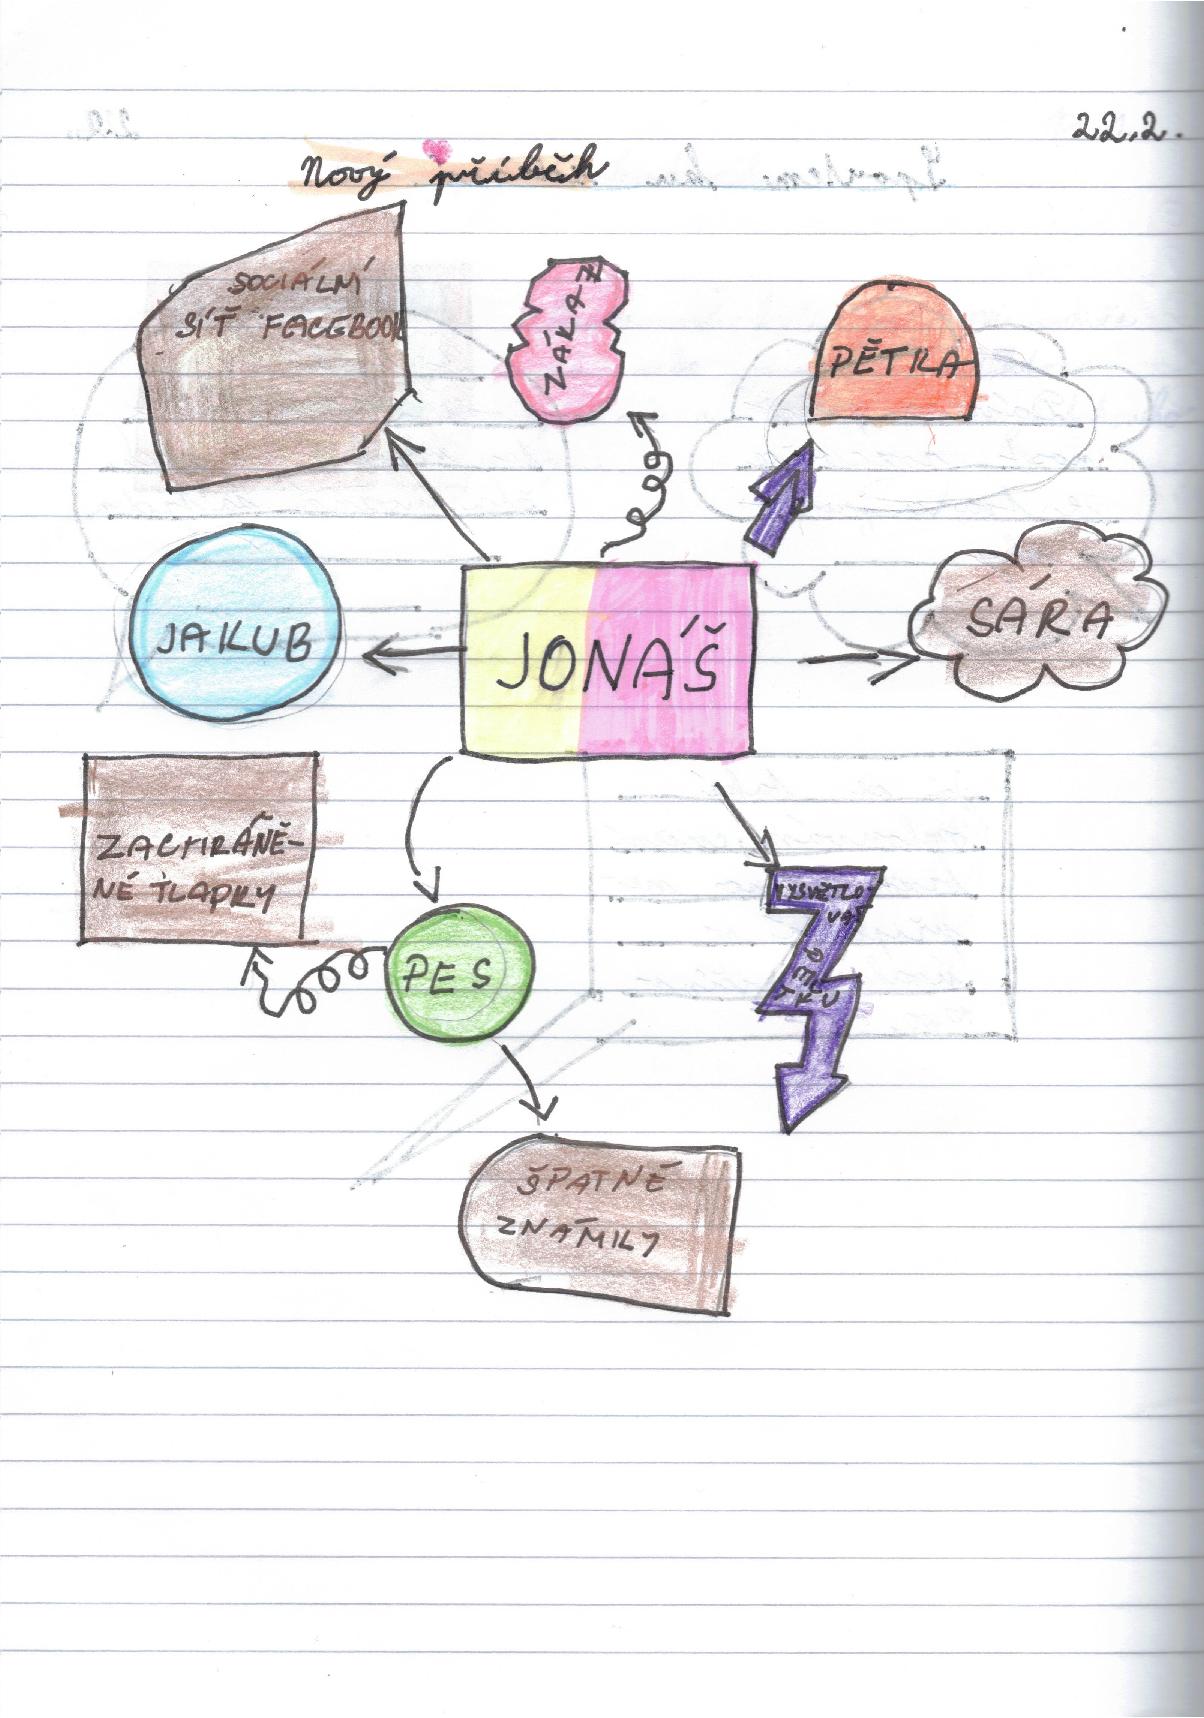 22.2.
Nový příběh
SOCIÁLNÍ
SÍŤ FACEBOOK
ZÁKAZ
PĚTRA
JAKUB
JONÁŠ
SÁRA
ZACHRÁNĚ-
NÉ TLAPKY
PES
VYSVĚTLO
VAT
ŠPATNÉ
ZNÁMKY